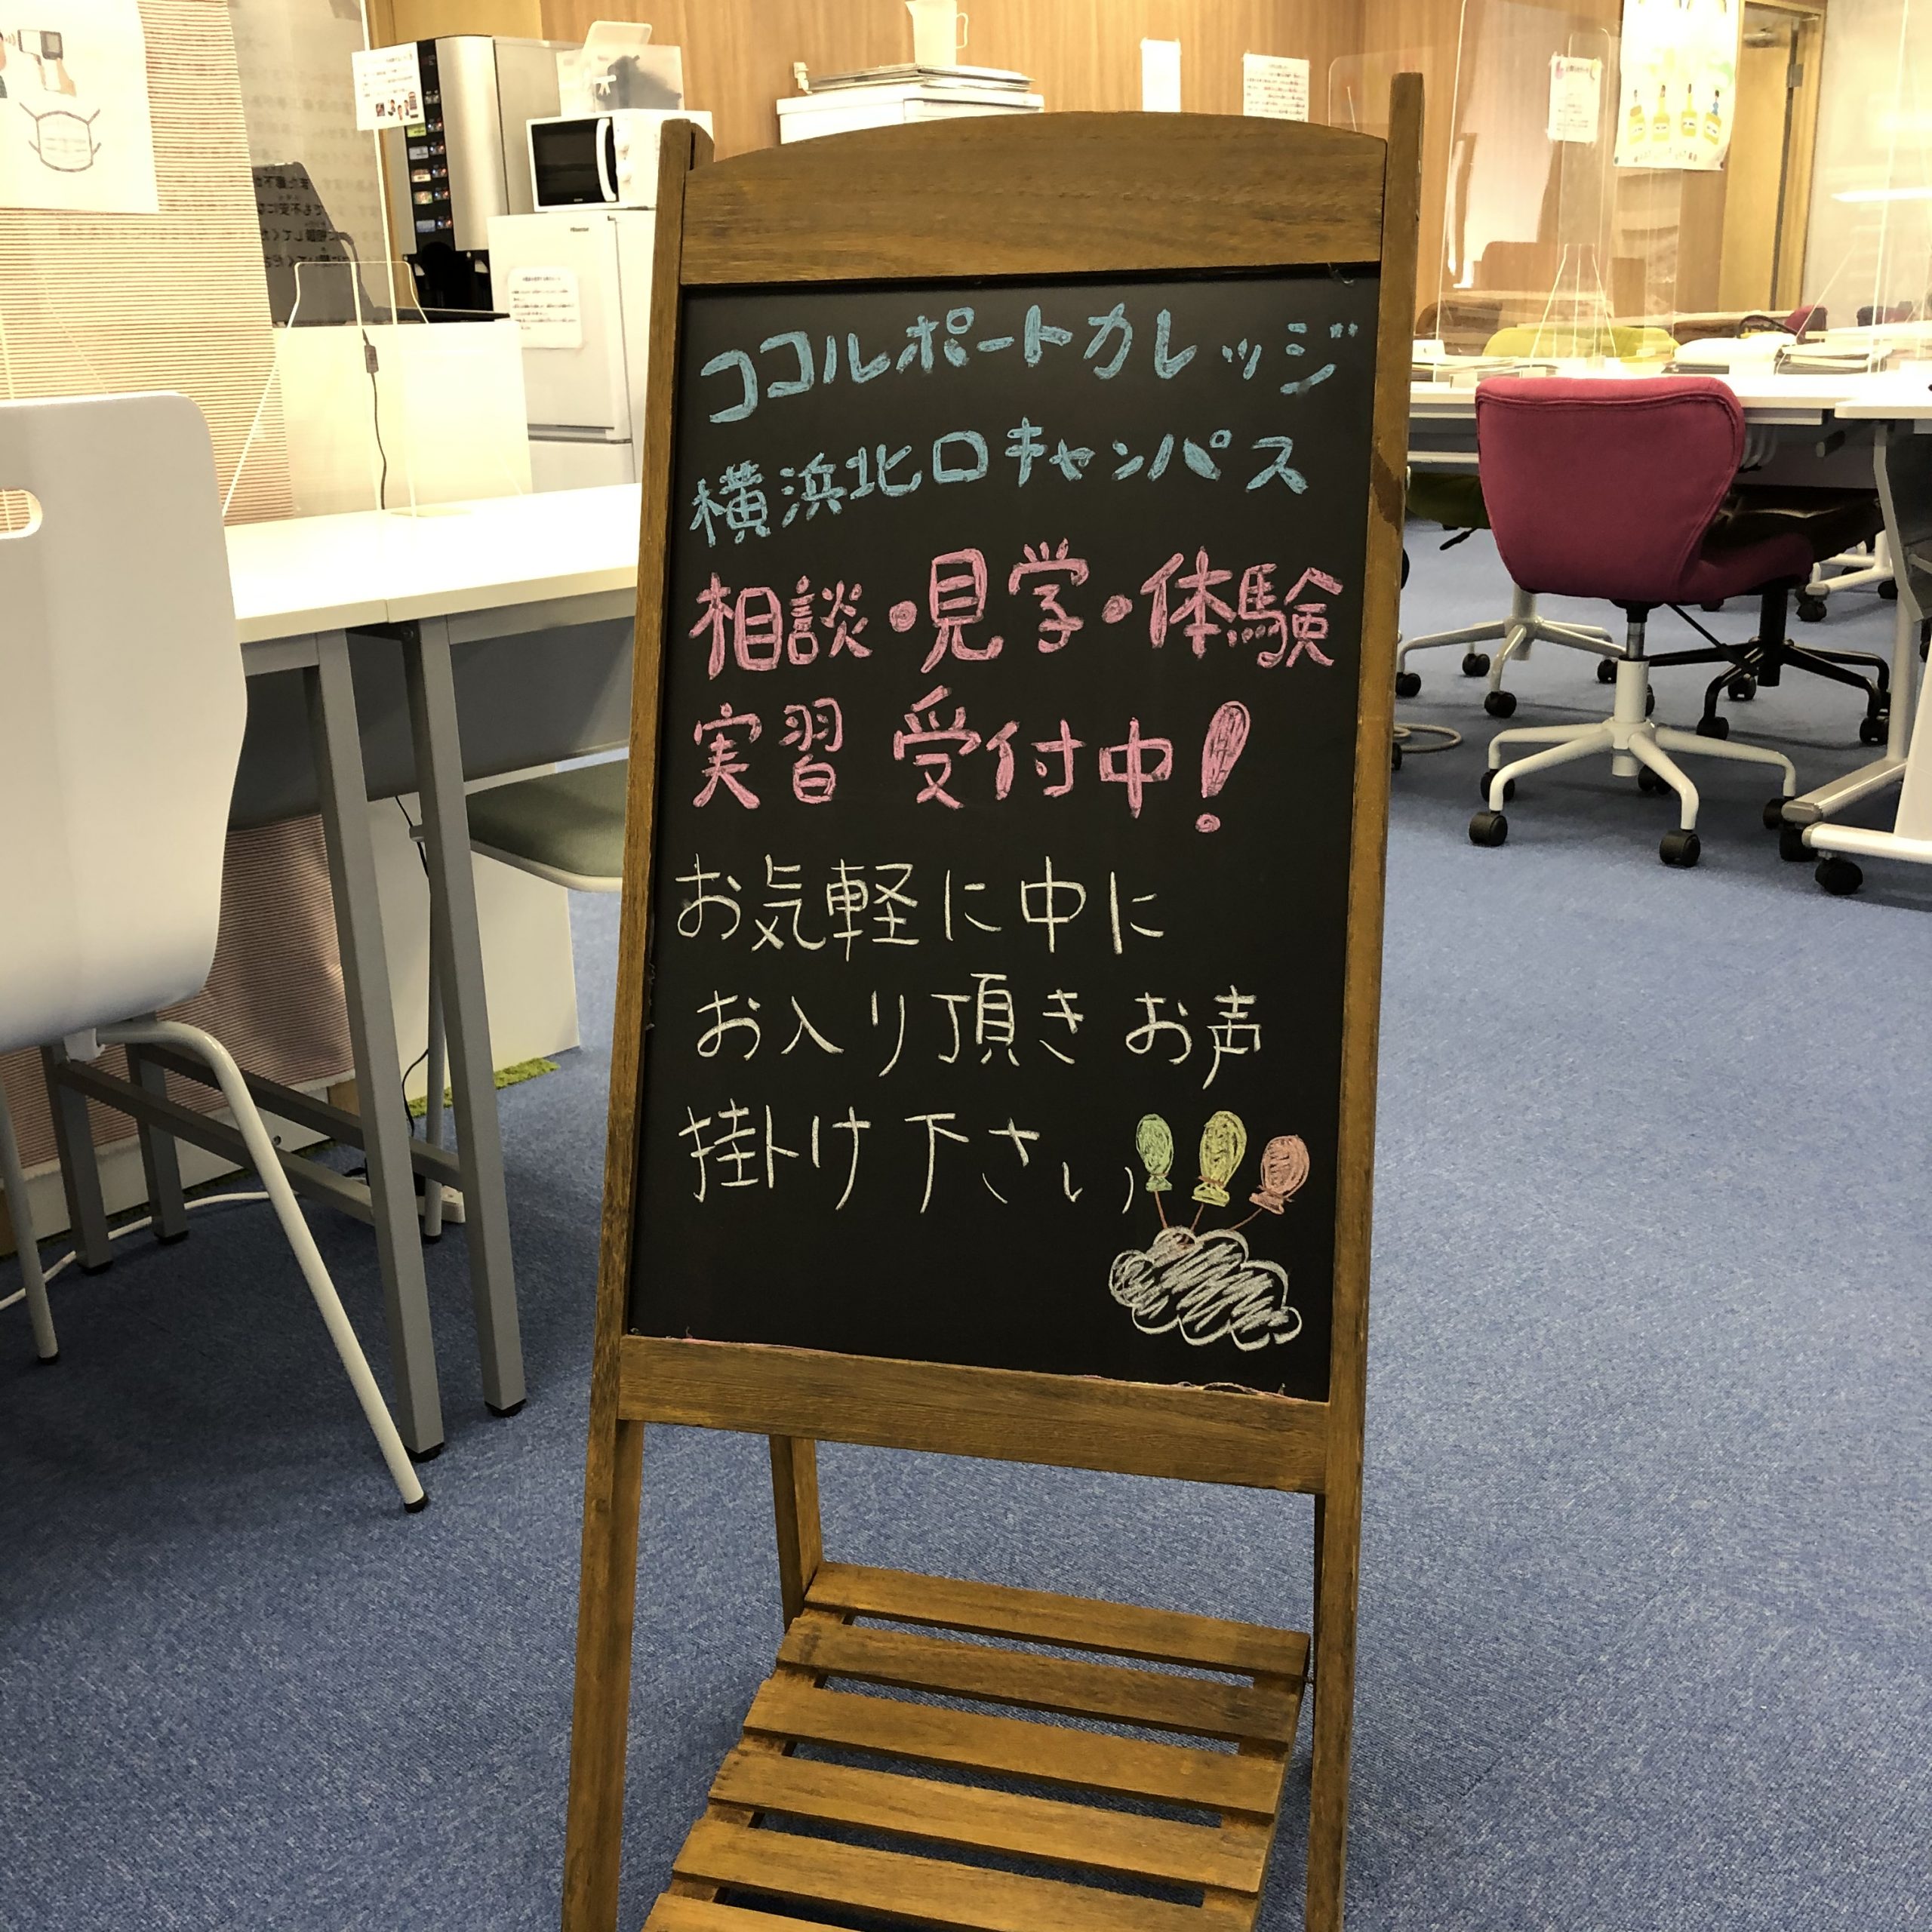 ココルポートカレッジ
横浜北口キャンパス
相談・見学・体験
実習 受付中!
お気軽に中に
お入り頂き お声
掛け下さい
Hisense